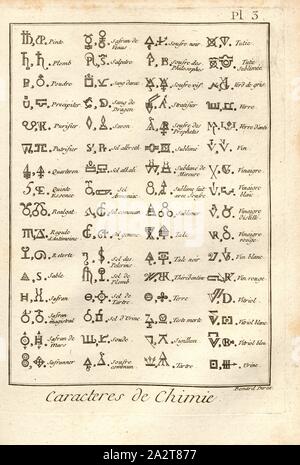 Pl 3
Pinte
Safran de Venus
Soufre noir
Tutie
Plomb
Salpetre
Soufre des Philosophes
Tutie Sublimée
Poudre
Sang danc
Soufre vif
Verd de gris
Precipiter
Sang de Dragon
Stratifier
Verre
Purifier
Savon
Soufre des Prophetes
Verre d'anti
Putrifier
Sel albroth
Sublimé
Vin
Quarteron
Sel alkali
Sublimé de Mercure
Vinaigre
Quinte Essence
Sel Armoniac
Sublimé fait avec Soufre
Vinaigre blanc
Realgal
Sel commun
Sublimer
Vinaigre distillé
Regule d'Antimoine
Sel gemme
Talc
Vinaigre rouge
Retorte
Sel des Pelerins
Talc noir
Vin blanc
Sable
Sel de Plomb
Thérébentine
Vin rouge
Safran
Sel de Tartre
Terre
Vitriol
Safran magistral
Sel d'Urine
Teste morte
Vitriol blanc
Safran de Mars
Soude
Vitriol bleu
Safranner
Soufre commun
Tartre
Urine
Benard Direx.
Caracteres de Chimie.
alamy
Image ID: 2A2T877
www.alamy.com